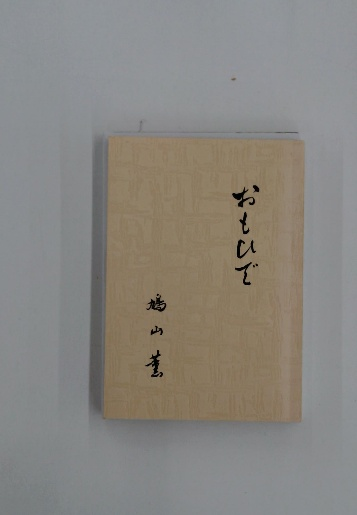 おもひで
鳩山薫